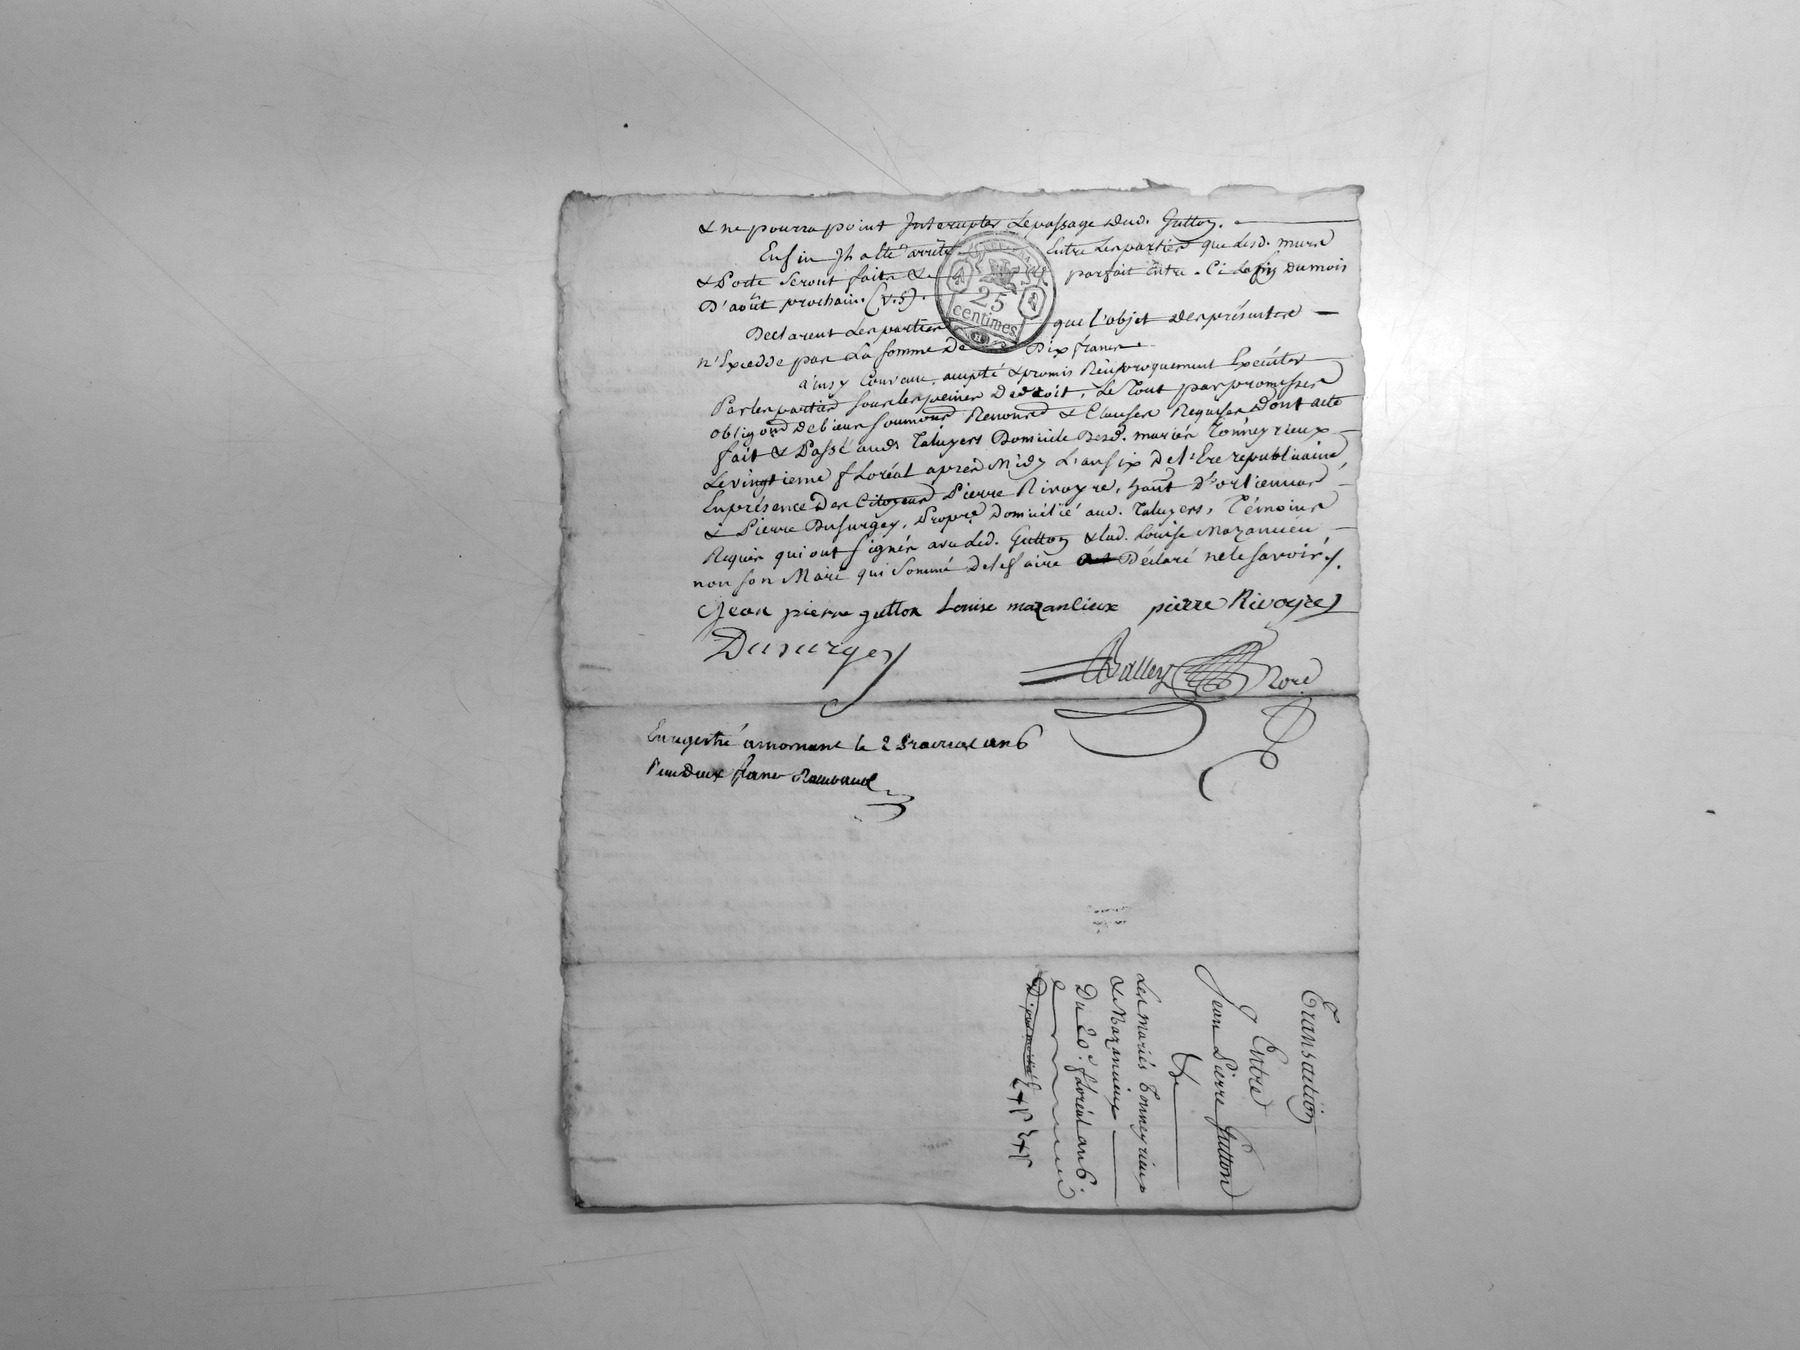 & ne pourra point Interupter Le passage Dud. Gutton.
Enfin Il a été arrêté Entre Les parties que Lesd. murs
& Porte Seront faits & parfait Entre. Ci La fin Du mois
D'août prochain. (v.s).
25
centimes
Declarent Les parties que L'objet Des présentes
n'Excedde pas La somme De Dix francs
ainsy Convenu, accepté & promis Réciproquement Executer
Par les parties sous les peines De droit, Le Tout par promesses
obligons De biens soumons Renons & Clauses Requises Dont acte
fait & Passé aud. Taluyers Domicile Desd. mariés Tonneyrieux
Le vingtieme floréal après Midy L'an six De l'Ere républicaine
En présence Des Citoyens Pierre Rivoyre, hant D'orlienas
& Pierre Dusurgey, Propre Domicilié aud. Taluyers, Témoins
Requis qui ont signés avec Led. Gutton & Lad. Louise Mazanieu
non son Mari qui Sommé De le faire a Déclaré ne le savoir.
Jean pierre gutton Louise mazanlieux pierre Rivoyre
Dusurgey
Balley Nore
Enregistré a mornant le 2 prairial an 6
Reçu Deux franc Raimbaud
Transaction
Entre
Jean Pierre Gutton
&
Les Mariés Tonneyrieux
& Mazanieux
Du 20e. floréal an 6.